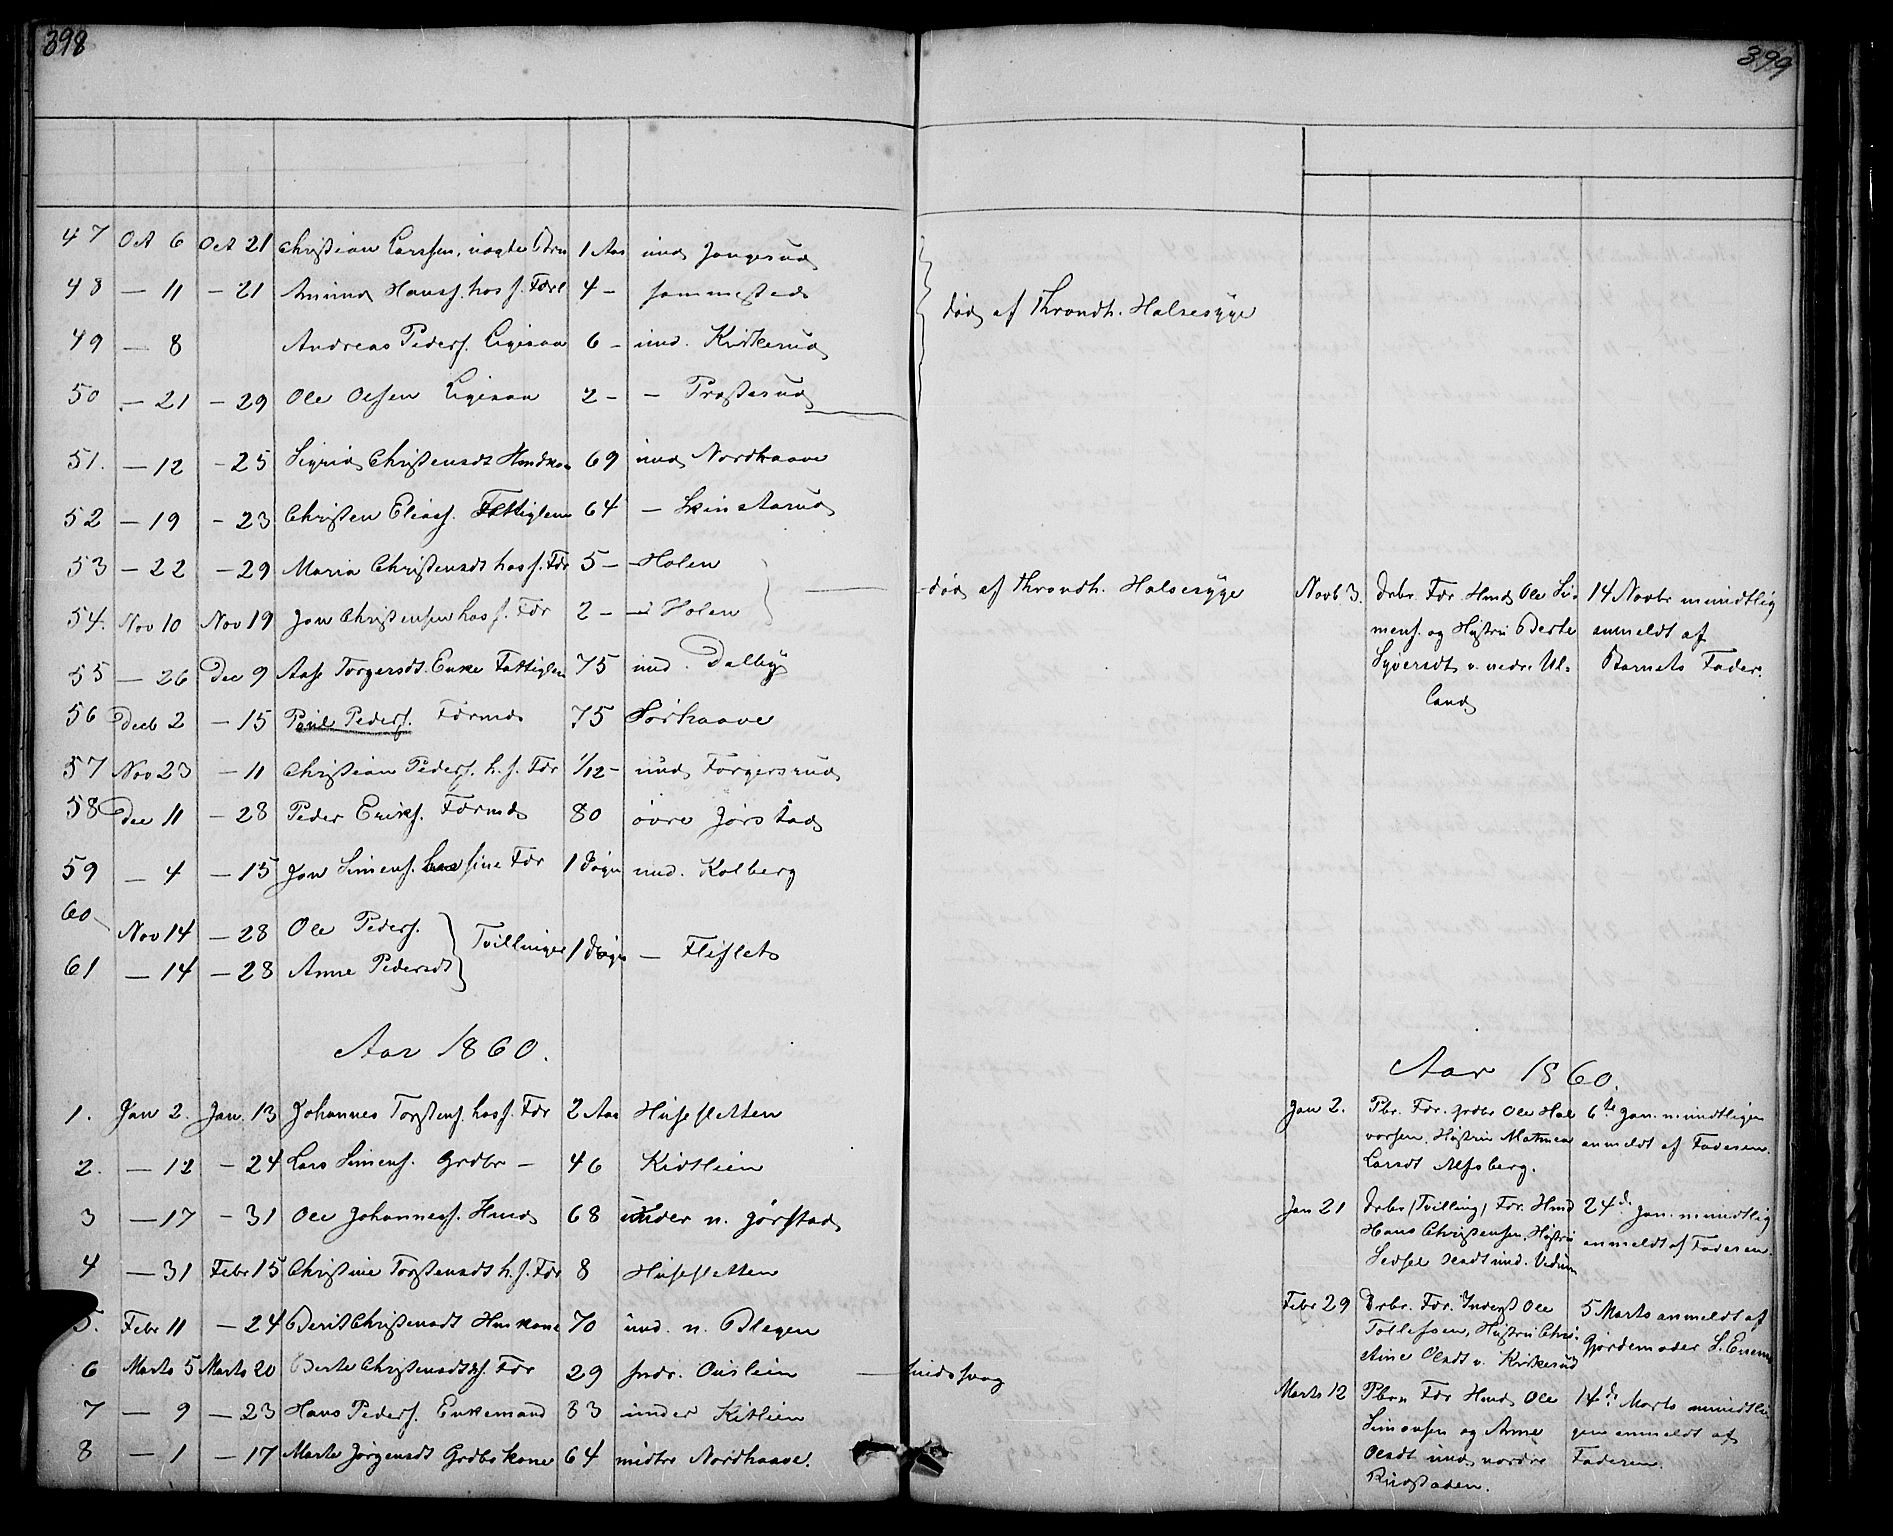 398
47 Oct 6 Oct 21 Christian Larssen, uægte Børn 1 Aar und Jongerud
48 — 11 — 21 Amund Hanss. hos s. Forl 4 - sammesteds
49 — 8 Andreas Peders. Ligesaa 6 - und. Kirkerud
50 — 21 — 29 Ole Olsen Ligesaa 2 - - Præsterud
51. — 12 — 25 Sigrid Christensdt Hmdkon 69 und Nordhaave
52 — 19 — 23 Christen Eliass. Fattiglem 64 —
53 — 22 — 29 Maria Christensdt hos s. For 5 - Holen
54. Nov 10 Nov 19 Jon Christensen hos s. For 2 - Holen
55 — 26 Dec 9 Aase Torgersdt. Enke Fattiglem 75 und. Dalby
56 Decb 2 — 15 Peders. Formd 75 Sørhaave
57 Nov 23 — 11 Christian Peders. h. s. For 1/12 - und Torgersrud
58 Dec 11 — 28 Peder Eriks. Formd 80 øvre Jørstad
59 — 4 — 15 Jon Simens. hos sine For 1 Døgn und. Kolberg
60 Nov 14 — 28 Ole Peders. Tvillinger 1 Døgn — Fliflet
61 — 14 — 28 Anne Pedersdt
Aar 1860.
1. Jan 2. Jan. 13 Johannes Torstens. hos s. For 2 Aar Husesletten
2. — 12 — 24 Lars Simens. Grdbr — 46 Kidtlien
3 — 17 — 31 Ole Johanness. Hmd 68 under n. Jørstad
4 — 31 Febr 15 Christine Torstensdt h. s. For 8 Husesletten
5. Febr 11 — 24 Berit Christensdt Huskone 70 und. n. Blegen
6 Marts 5 Marts 20 Berte Christensdt h. s. For 29
7 — 9 — 23 Hans Peders. Enkemand 83 under Kitlien
8 — 1 — 17 Marte Jørgensdt Grdbs kone 64 midtre Nordhaave.
399
død af Throndh. Halsesyge
død af Throndh. Halsesyge
sindssvag
Novb 3. Drbr. For. Hmd Ole Si-
mens. og Hustru Berte
Syversdt v. nedr. Ul-
land
14 Novbr mundtlig
anmeldt af
Barnets Fader.
Aar 1860.
Jan 2. Pbr. For. Grdbr Ole Hal
vorsen, Hustru Mathea
Larsdt Alfsberg.
6te Jan. mundtligen
anmeldt af Faderen.
Jan 21 Drbr (Tvilling) For. Hmd
Hans Christensen, Hustru
Sedsel Olsdt und. Vedum
24de Jan. mundtlig
anmeldt af Faderen.
Febr 29 Drbr. For. Inderst Ole
Tollefsen, Hustru Chri-
stine Olsdt v. Kirkerud
5 Marts anmeldt af
Gjordemoder
Marts 12 Pbrn For Hmd Ole
Simensen og Anne
Olsdt und nordre
Rudstaden.
14de Marts mundtli
gen anmeldt af
Faderen.